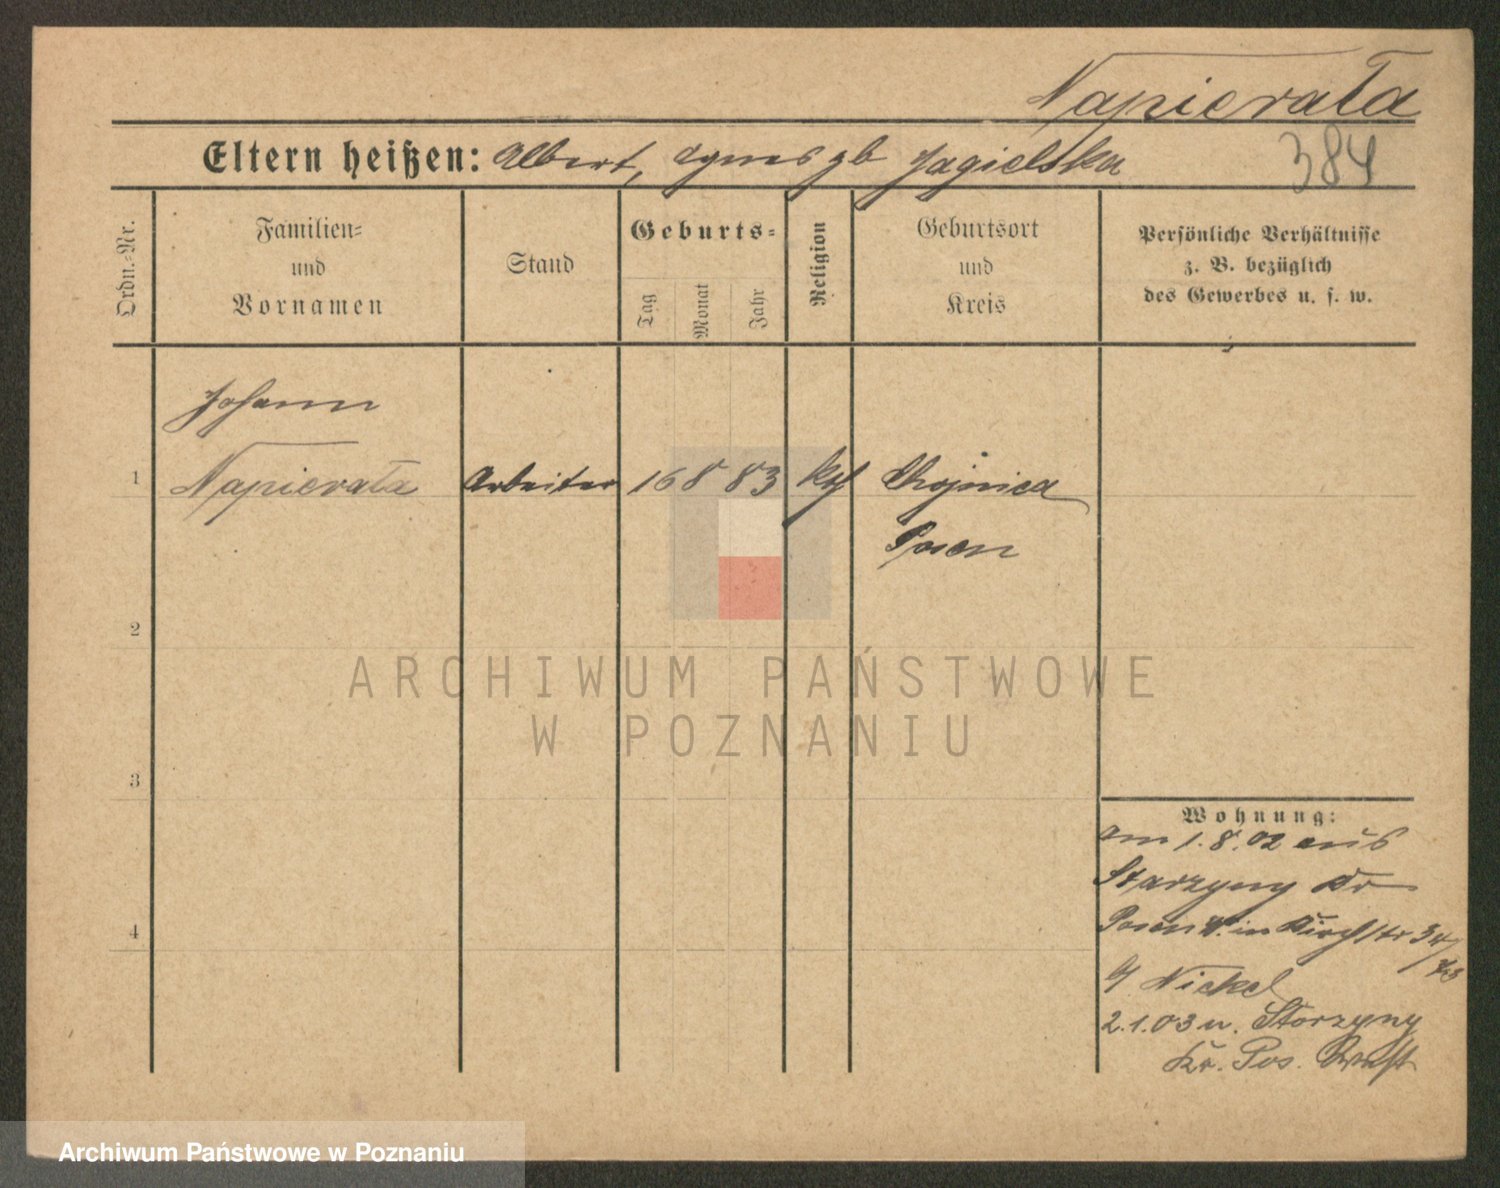 Napierała
384
Eltern heißen: Albert, Agnes gb Jagielska
Ordn.-Nr.
Familien-
und
Vornamen
Stand
Geburts-
Tag
Monat
Jahr
Religion
Geburtsort
und
Kreis
Persönliche Verhältnisse
z. B. bezüglich
des Gewerbes u. s. w.
Johann
1 Napierała Arbeiter 16 8 83 kth Chojnica
Posen
2
3
4
Wohnung:
am 1.8.02 aus
Starzyny Kr
Posen W. in Kirchstr 34/
b/ Nickel
2.1.03 n. Storzyny
Kr. Pos. West
ARCHIWUM PAŃSTWOWE
W POZNANIU
Archiwum Państwowe w Poznaniu